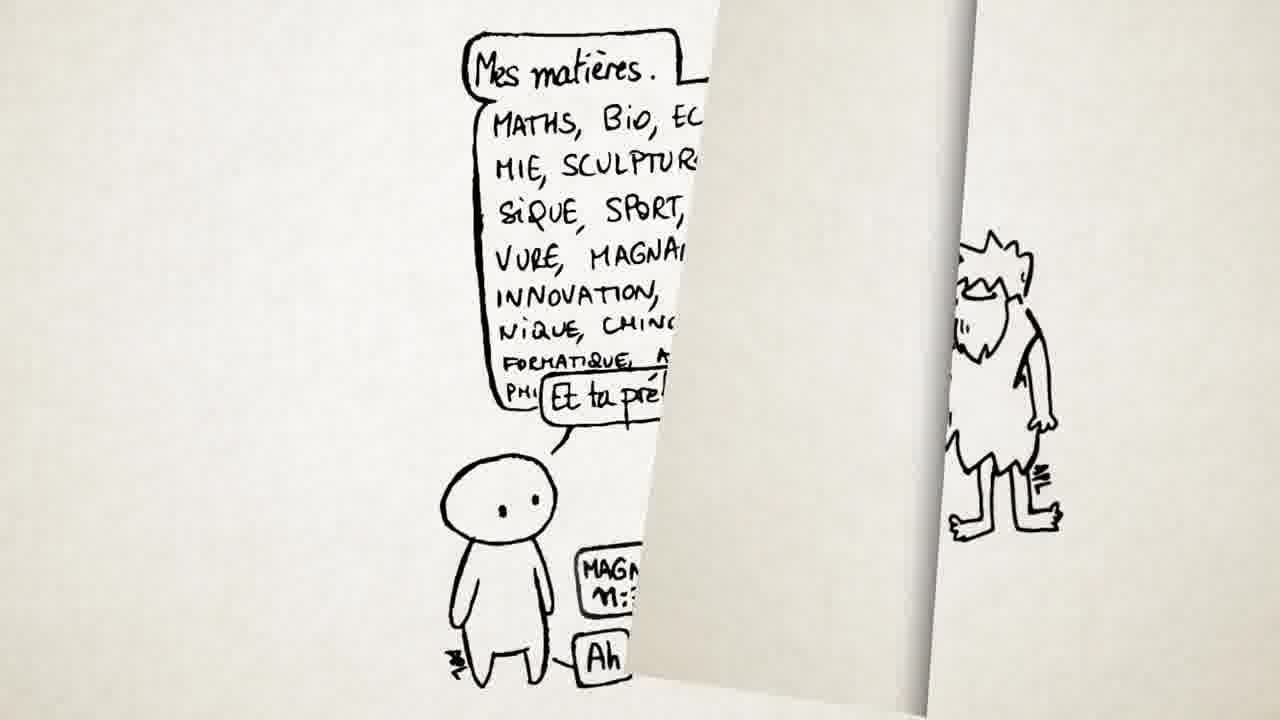 Mes matières.
MATHS, Bio, EC
MIE, SCULPTUR
SiQUE, SPORT,
VURE, MAGNA
INNOVATION,
NiQUE, CHINO
FORMATIQUE, A
PHI
Et ta pré
MAGN
n:
Ah